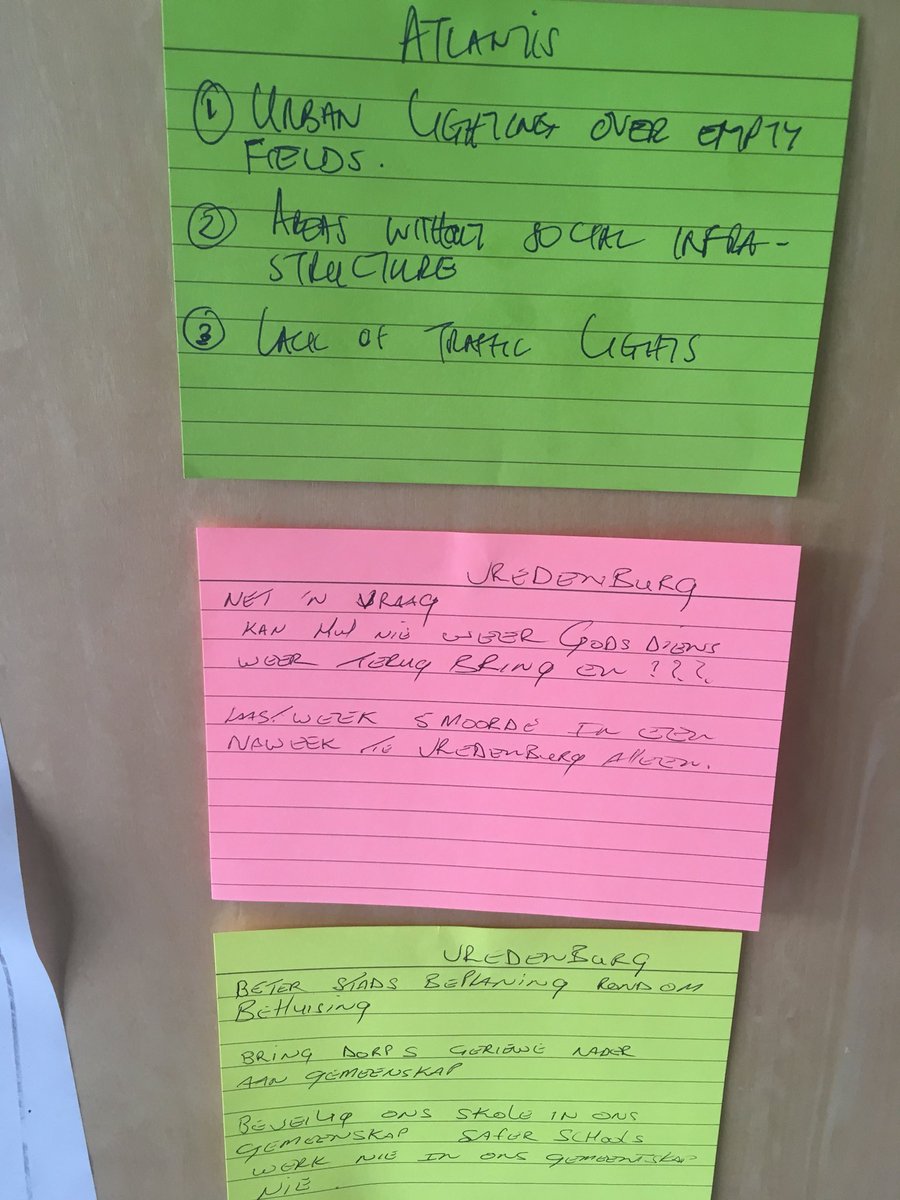 ATLANTIS
① URBAN LIGHTING OVER EMPTY
FIELDS.
② AREAS WITHOUT SOCIAL INFRA-
STRUCTURE
③ LACK OF TRAFFIC LIGHTS
VREDENBURG
NET 'N VRAAG
KAN NIE WEER GODS DIENS
WEER TERUG BRING EN ???
LAAS WEEK 5 MOORDE IN EEN
NAWEEK TE VREDENBURG ALLEEN.
VREDENBURG
BETER STADS BEPLANING RONDOM
BEHUISING
BRING DORPS GERIEWE NADER
AAN GEMEENSKAP
BEVEILIG ONS SKOLE IN ONS
GEMEENSKAP SAFER SCHOOLS
WERK NIE IN ONS GEMEENTSKAP
NIE